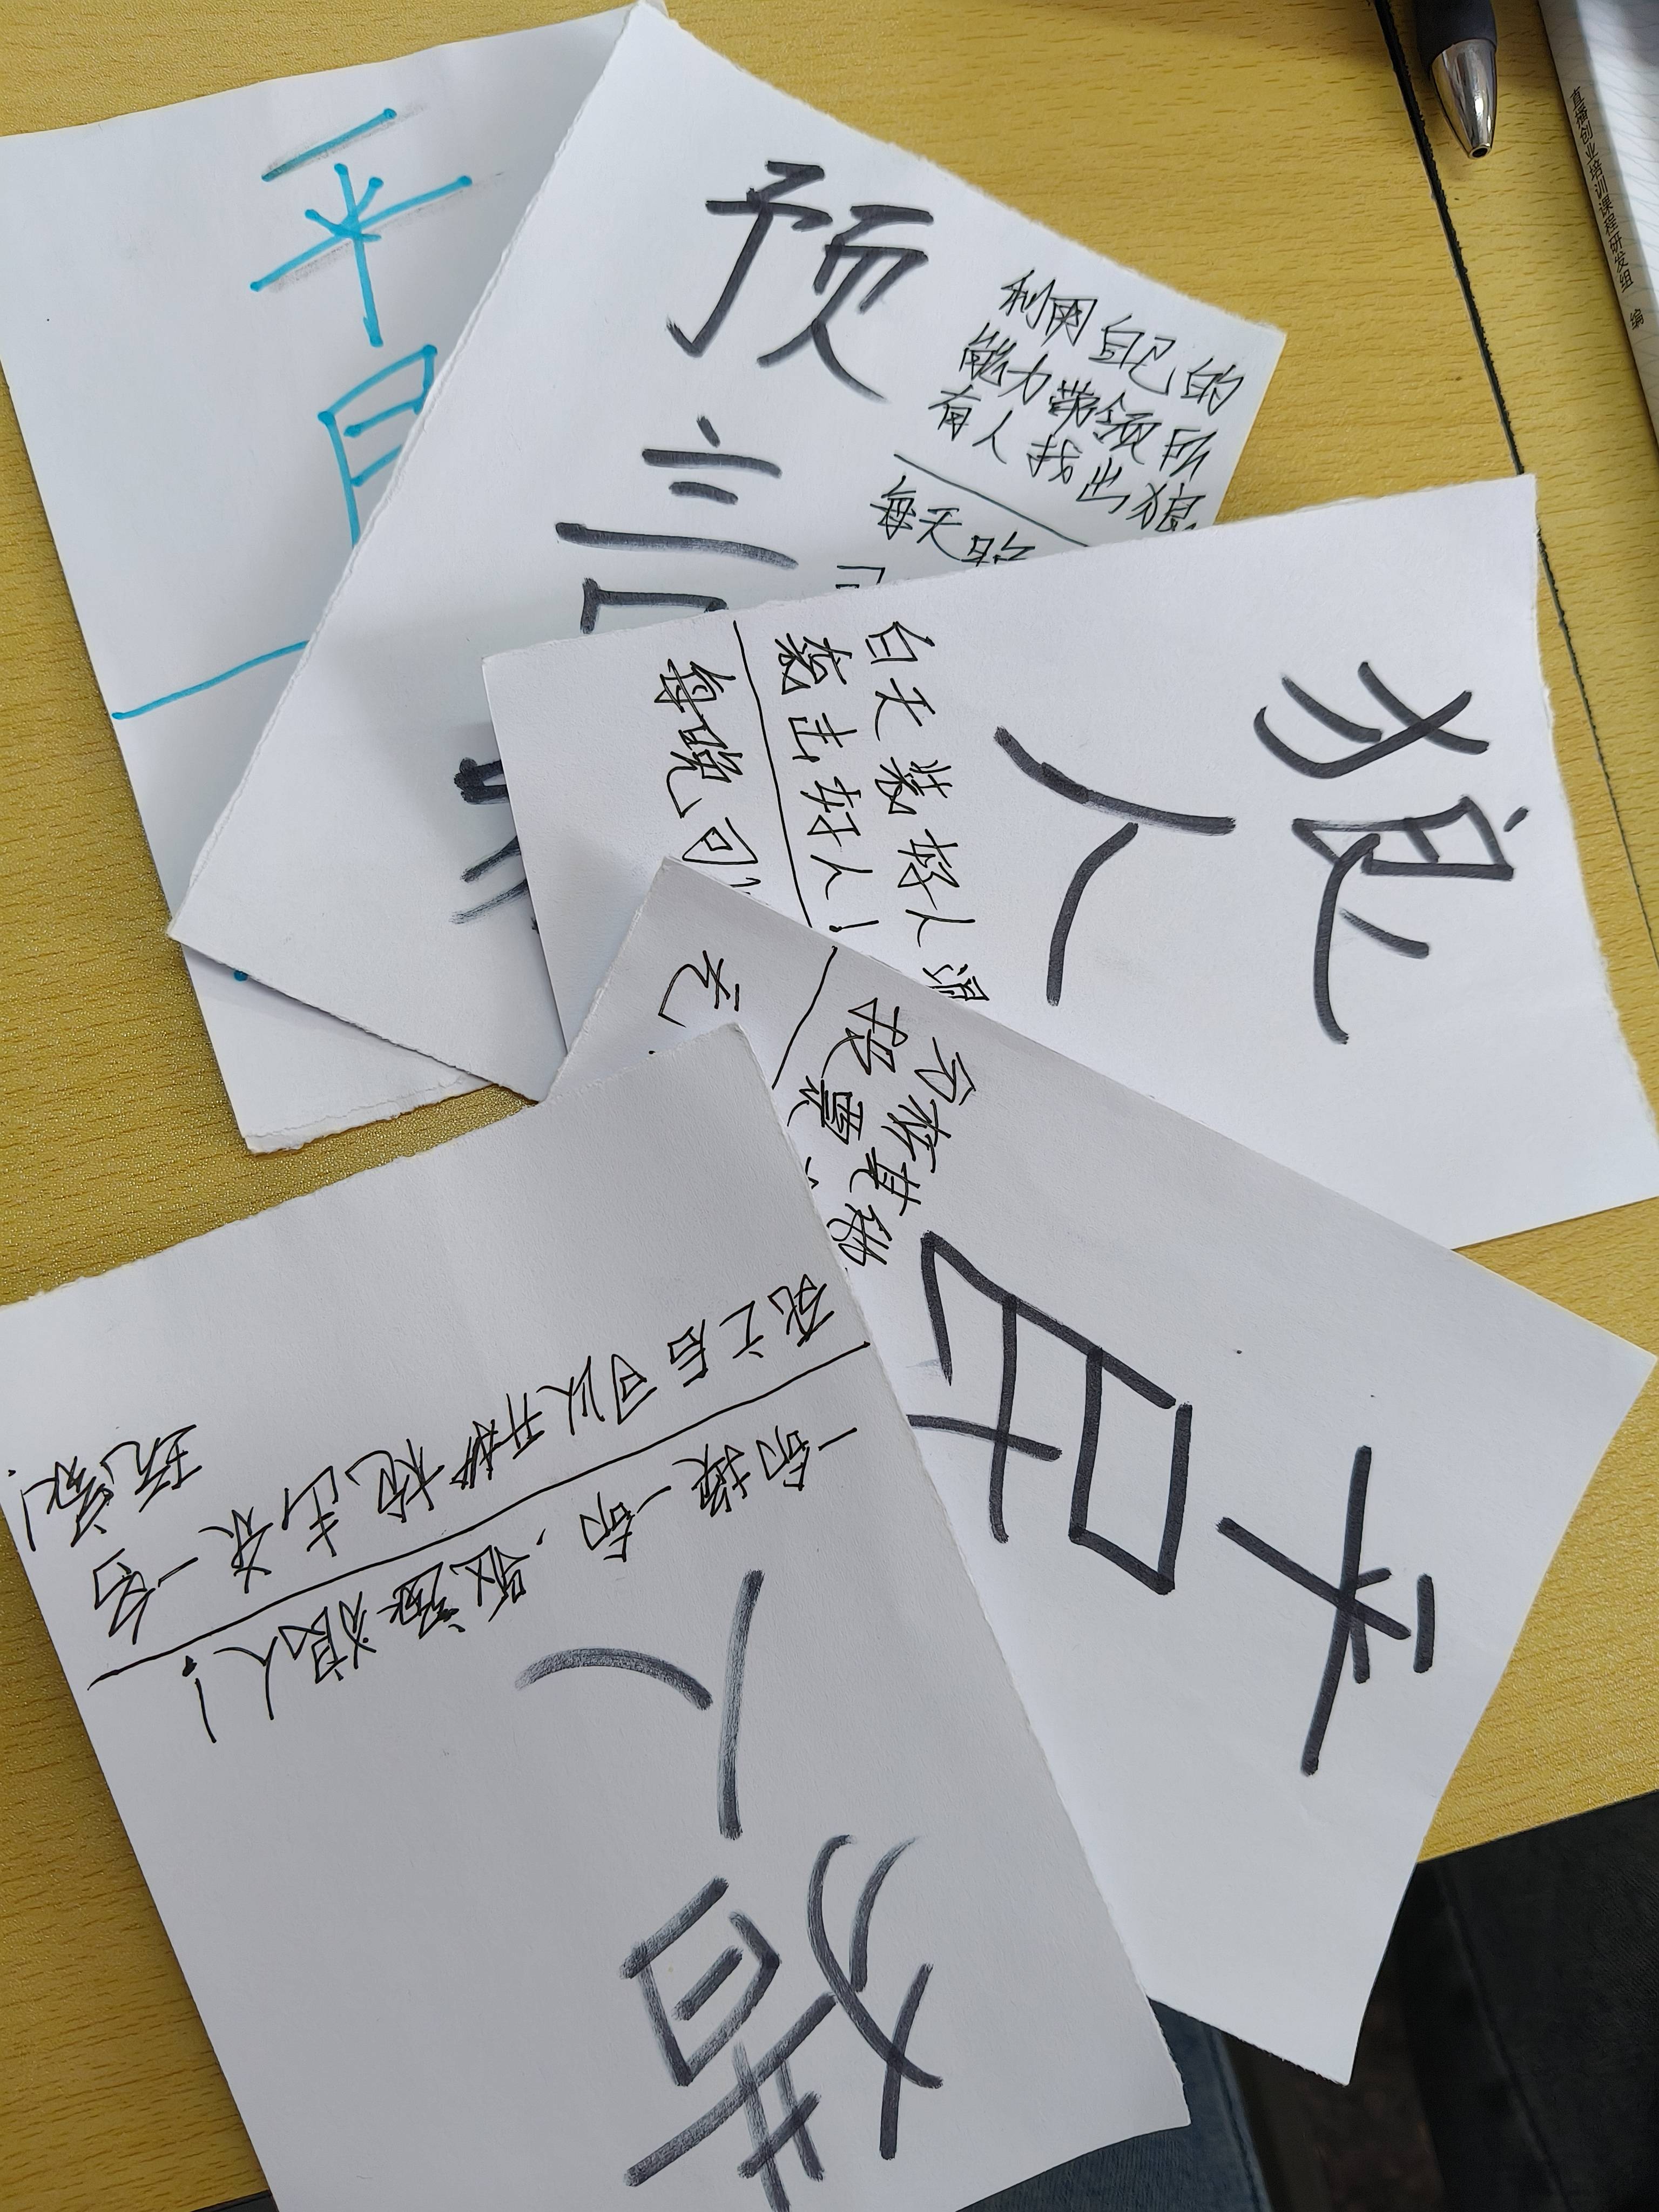 平
预
言
利用自己的
能力带领所
有人找出狼
每天
狼
人
白天装好人混
票出好人!
每晚可以
平
民
分析其他
投票
无
猎
人
一命换一命,敢逼狼人!
死亡后可以开枪击杀一名
玩家!
直播创业培训课程研发组 编